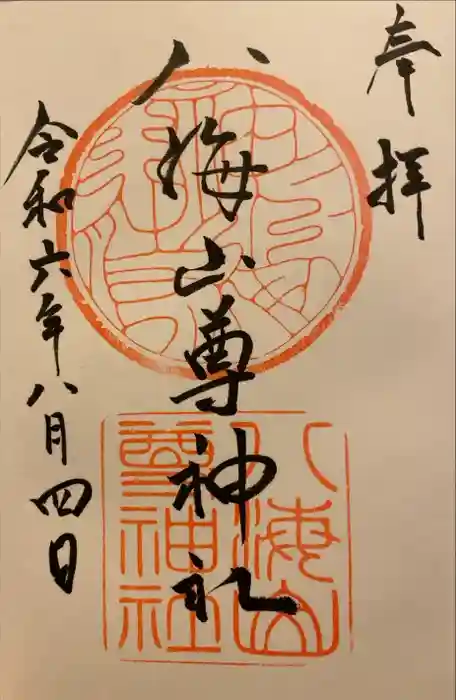 奉拝
八海山尊神社
令和六年八月四日
八海山
尊神社